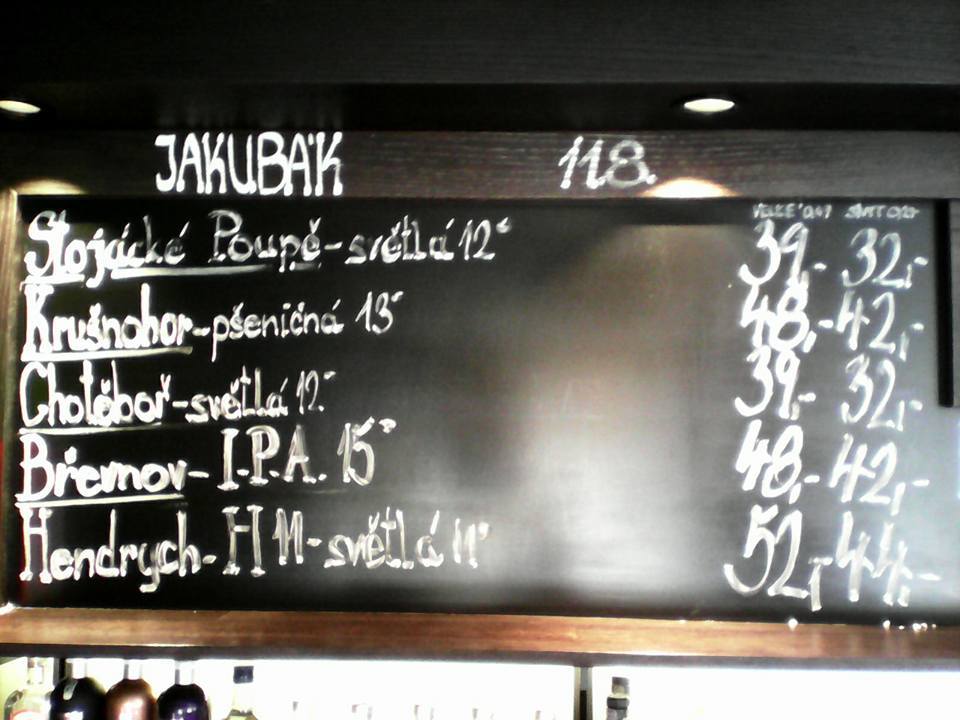 JAKUBÁK 118.
Stojácké Poupě - světlá 12° 39,- 32,-
Krušnohor - pšeničná 13° 48,- 42,-
Chotěboř - světlá 12° 39,- 32,-
Břevnov - I.P.A. 15° 48,- 42,-
Hendrych - H 11 - světlá 11° 52,- 44,-